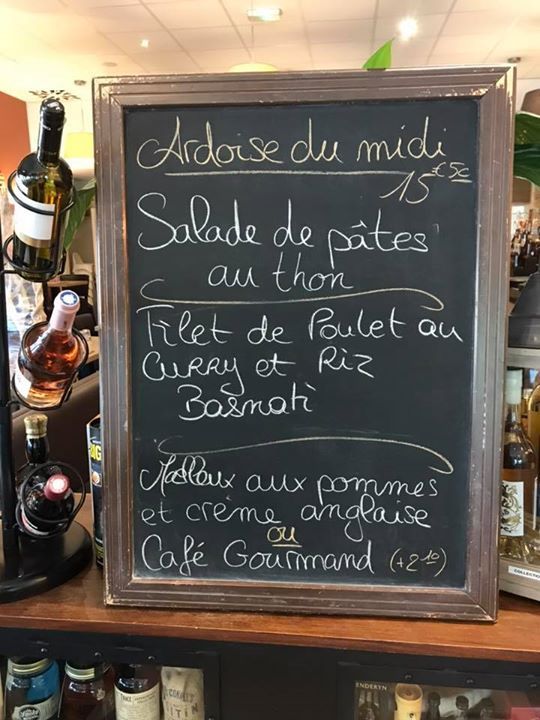 Ardoise du midi
15€50
Salade de pâtes
au thon
Filet de Poulet au
Curry et Riz
Basmati
Moelleux aux pommes
et crème anglaise
ou
Café Gourmand (+2,10)
COLLECTION
ENDERYN